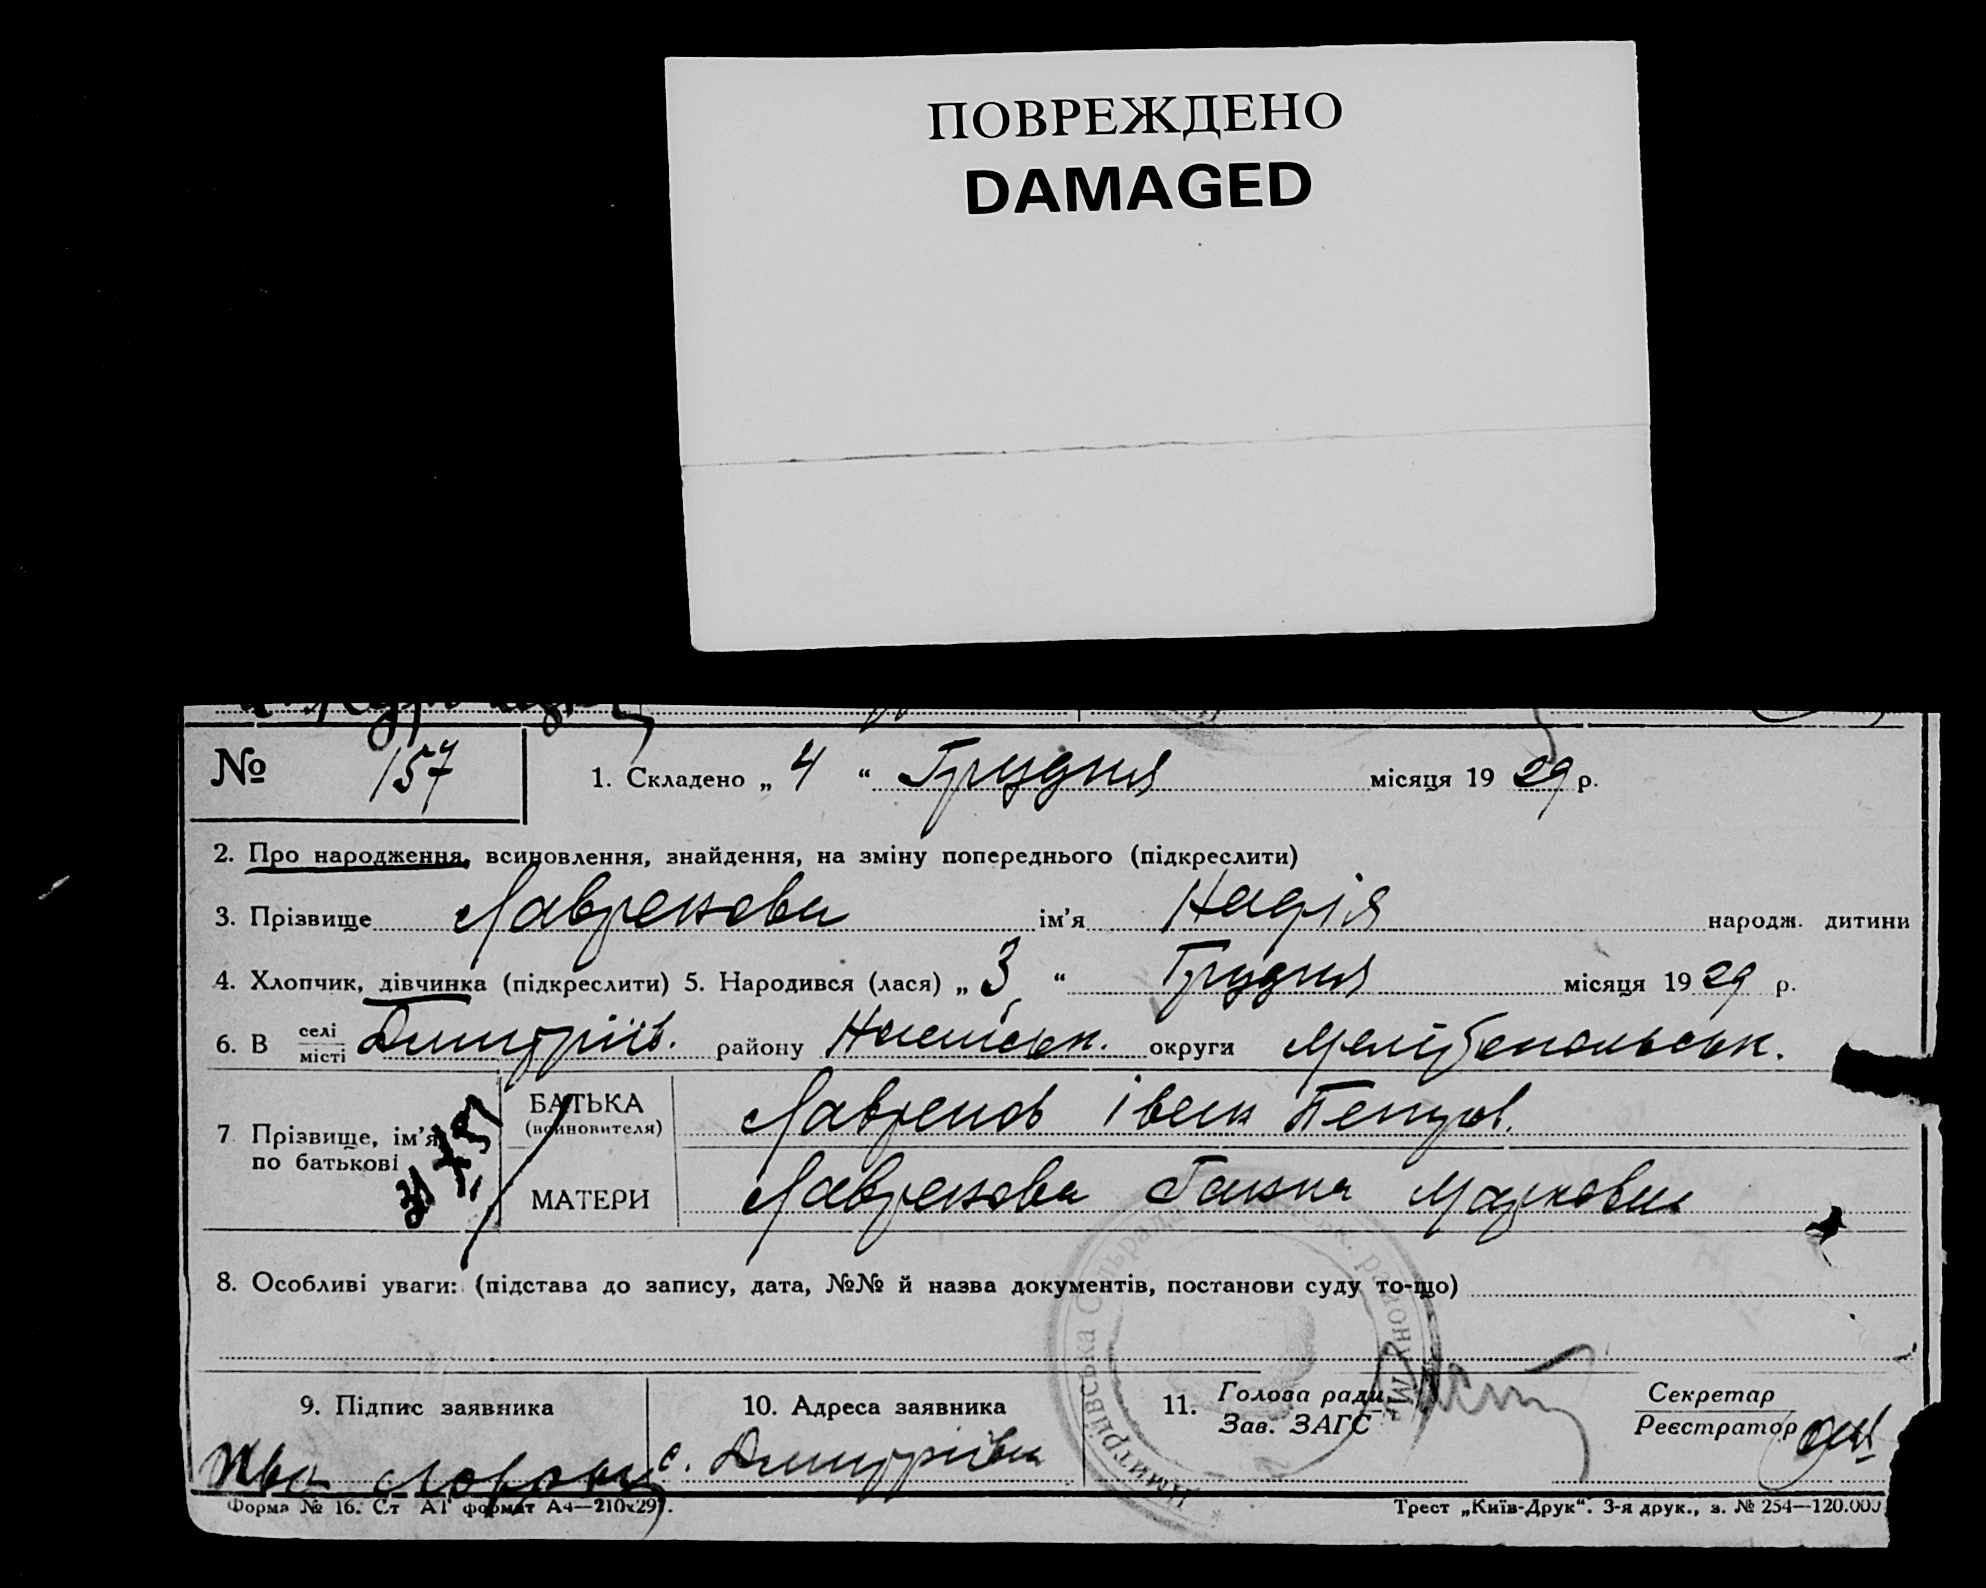 ПОВРЕЖДЕНО
DAMAGED
№ 157
1. Складено „ 4 “ Грудня місяця 19 29 р.
2. Про народження, всиновлення, знайдення, на зміну попереднього (підкреслити)
3. Прізвище Лавренова ім’я Надія народж. дитини
4. Хлопчик, дівчинка (підкреслити) 5. Народився (лася) „ 3 “ Грудня місяця 19 29 р.
6. В селі місті Дмитріїв. району округи Мелітопольськ.
7 Прізвище, ім’я по батькові
БАТЬКА (всиновителя) Лавренов Іван Петров.
МАТЕРИ Лавренова Ганна Марковна
8. Особливі уваги: (підстава до запису, дата, №№ й назва документів, постанови суду то-що)
9. Підпис заявника
10. Адреса заявника
11. Голова ради Зав. ЗАГС
Секретар Реєстратор
с. Дмитріївка
Форма № 16. Ст АТ формат А4—210х297.
Трест „Київ-Друк“. 3-я друк., з. № 254—120.000
Дмитрівська Сільрада район